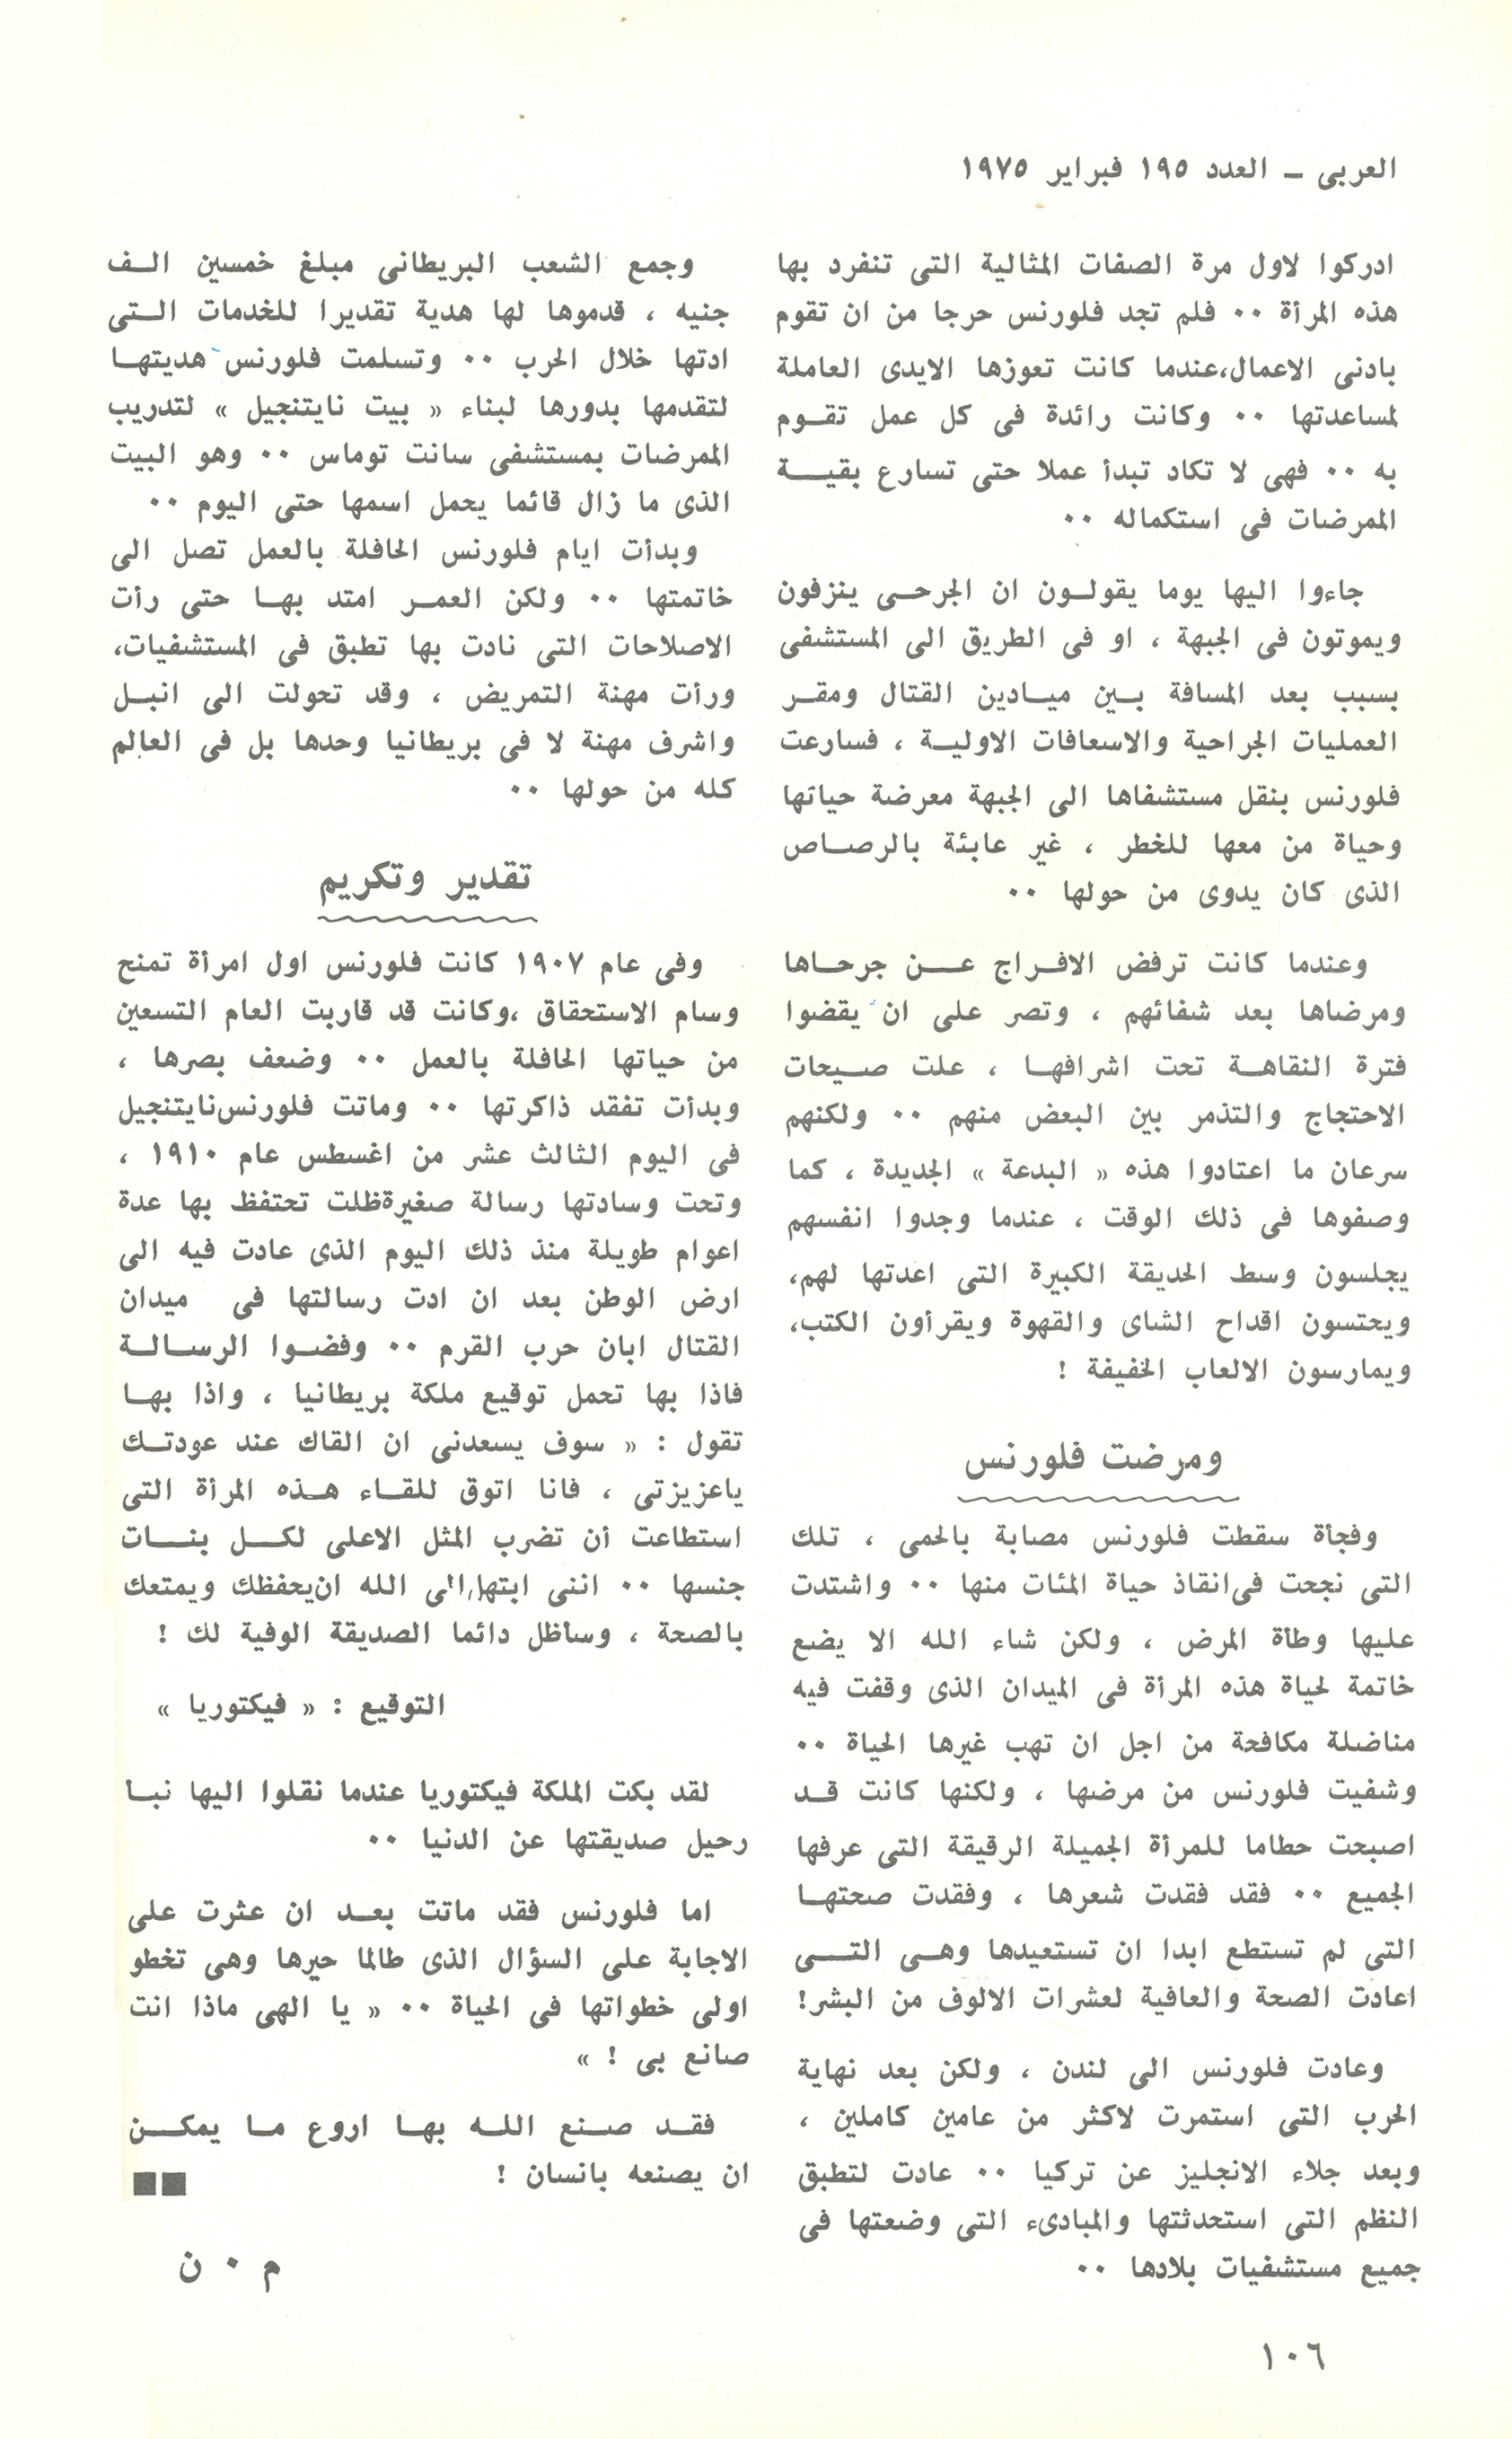 العربى ــ العدد ١٩٥ فبراير ١٩٧٥
ادركوا لاول مرة الصفات المثالية التى تنفرد بها
هذه المرأة ٠٠ فلم تجد فلورنس حرجا من ان تقوم
بادنى الاعمال،عندما كانت تعوزها الايدى العاملة
لمساعدتها ٠٠ وكانت رائدة فى كل عمل تقوم
به ٠٠ فهى لا تكاد تبدأ عملا حتى تسارع بقية
الممرضات فى استكماله ٠٠
جاءوا اليها يوما يقولون ان الجرحى ينزفون
ويموتون فى الجبهة ، او فى الطريق الى المستشفى
بسبب بعد المسافة بين ميادين القتال ومقر
العمليات الجراحية والاسعافات الاولية ، فسارعت
فلورنس بنقل مستشفاها الى الجبهة معرضة حياتها
وحياة من معها للخطر ، غير عابئة بالرصاص
الذى كان يدوى من حولها ٠٠
وعندما كانت ترفض الافراج عن جرحاها
ومرضاها بعد شفائهم ، وتصر على ان يقضوا
فترة النقاهة تحت اشرافها ، علت صيحات
الاحتجاج والتذمر بين البعض منهم ٠٠ ولكنهم
سرعان ما اعتادوا هذه « البدعة » الجديدة ، كما
وصفوها فى ذلك الوقت ، عندما وجدوا انفسهم
يجلسون وسط الحديقة الكبيرة التى اعدتها لهم،
ويحتسون اقداح الشاى والقهوة ويقرأون الكتب،
ويمارسون الالعاب الخفيفة !
ومرضت فلورنس
وفجأة سقطت فلورنس مصابة بالحمى ، تلك
التى نجحت فى انقاذ حياة المئات منها ٠٠ واشتدت
عليها وطأة المرض ، ولكن شاء الله الا يضع
خاتمة لحياة هذه المرأة فى الميدان الذى وقفت فيه
مناضلة مكافحة من اجل ان تهب غيرها الحياة ٠٠
وشفيت فلورنس من مرضها ، ولكنها كانت قد
اصبحت حطاما للمرأة الجميلة الرقيقة التى عرفها
الجميع ٠٠ فقد فقدت شعرها ، وفقدت صحتها
التى لم تستطع ابدا ان تستعيدها وهى التى
اعادت الصحة والعافية لعشرات الالوف من البشر!
وعادت فلورنس الى لندن ، ولكن بعد نهاية
الحرب التى استمرت لاكثر من عامين كاملين ،
وبعد جلاء الانجليز عن تركيا ٠٠ عادت لتطبق
النظم التى استحدثتها والمبادىء التى وضعتها فى
جميع مستشفيات بلادها ٠٠
وجمع الشعب البريطانى مبلغ خمسين الف
جنيه ، قدموها لها هدية تقديرا للخدمات التى
ادتها خلال الحرب ٠٠ وتسلمت فلورنس هديتها
لتقدمها بدورها لبناء « بيت نايتنجيل » لتدريب
الممرضات بمستشفى سانت توماس ٠٠ وهو البيت
الذى ما زال قائما يحمل اسمها حتى اليوم ٠٠
وبدأت ايام فلورنس الحافلة بالعمل تصل الى
خاتمتها ٠٠ ولكن العمر امتد بها حتى رأت
الاصلاحات التى نادت بها تطبق فى المستشفيات،
ورأت مهنة التمريض ، وقد تحولت الى انبل
واشرف مهنة لا فى بريطانيا وحدها بل فى العالم
كله من حولها ٠٠
تقدير وتكريم
وفى عام ١٩٠٧ كانت فلورنس اول امرأة تمنح
وسام الاستحقاق ،وكانت قد قاربت العام التسعين
من حياتها الحافلة بالعمل ٠٠ وضعف بصرها ،
وبدأت تفقد ذاكرتها ٠٠ وماتت فلورنس نايتنجيل
فى اليوم الثالث عشر من اغسطس عام ١٩١٠ ،
وتحت وسادتها رسالة صغيرة ظلت تحتفظ بها عدة
اعوام طويلة منذ ذلك اليوم الذى عادت فيه الى
ارض الوطن بعد ان ادت رسالتها فى ميدان
القتال ابان حرب القرم ٠٠ وفضوا الرسالة
فاذا بها تحمل توقيع ملكة بريطانيا ، واذا بها
تقول : « سوف يسعدنى ان القاك عند عودتك
ياعزيزتى ، فانا اتوق للقاء هذه المرأة التى
استطاعت أن تضرب المثل الاعلى لكل بنات
جنسها ٠٠ اننى ابتهل الى الله ان يحفظك ويمتعك
بالصحة ، وسأظل دائما الصديقة الوفية لك !
التوقيع : « فيكتوريا »
لقد بكت الملكة فيكتوريا عندما نقلوا اليها نبا
رحيل صديقتها عن الدنيا ٠٠
اما فلورنس فقد ماتت بعد ان عثرت على
الاجابة على السؤال الذى طالما حيرها وهى تخطو
اولى خطواتها فى الحياة ٠٠ « يا الهى ماذا انت
صانع بى ! »
فقد صنع الله بها اروع ما يمكن
ان يصنعه بانسان !
م ٠ ن
١٠٦